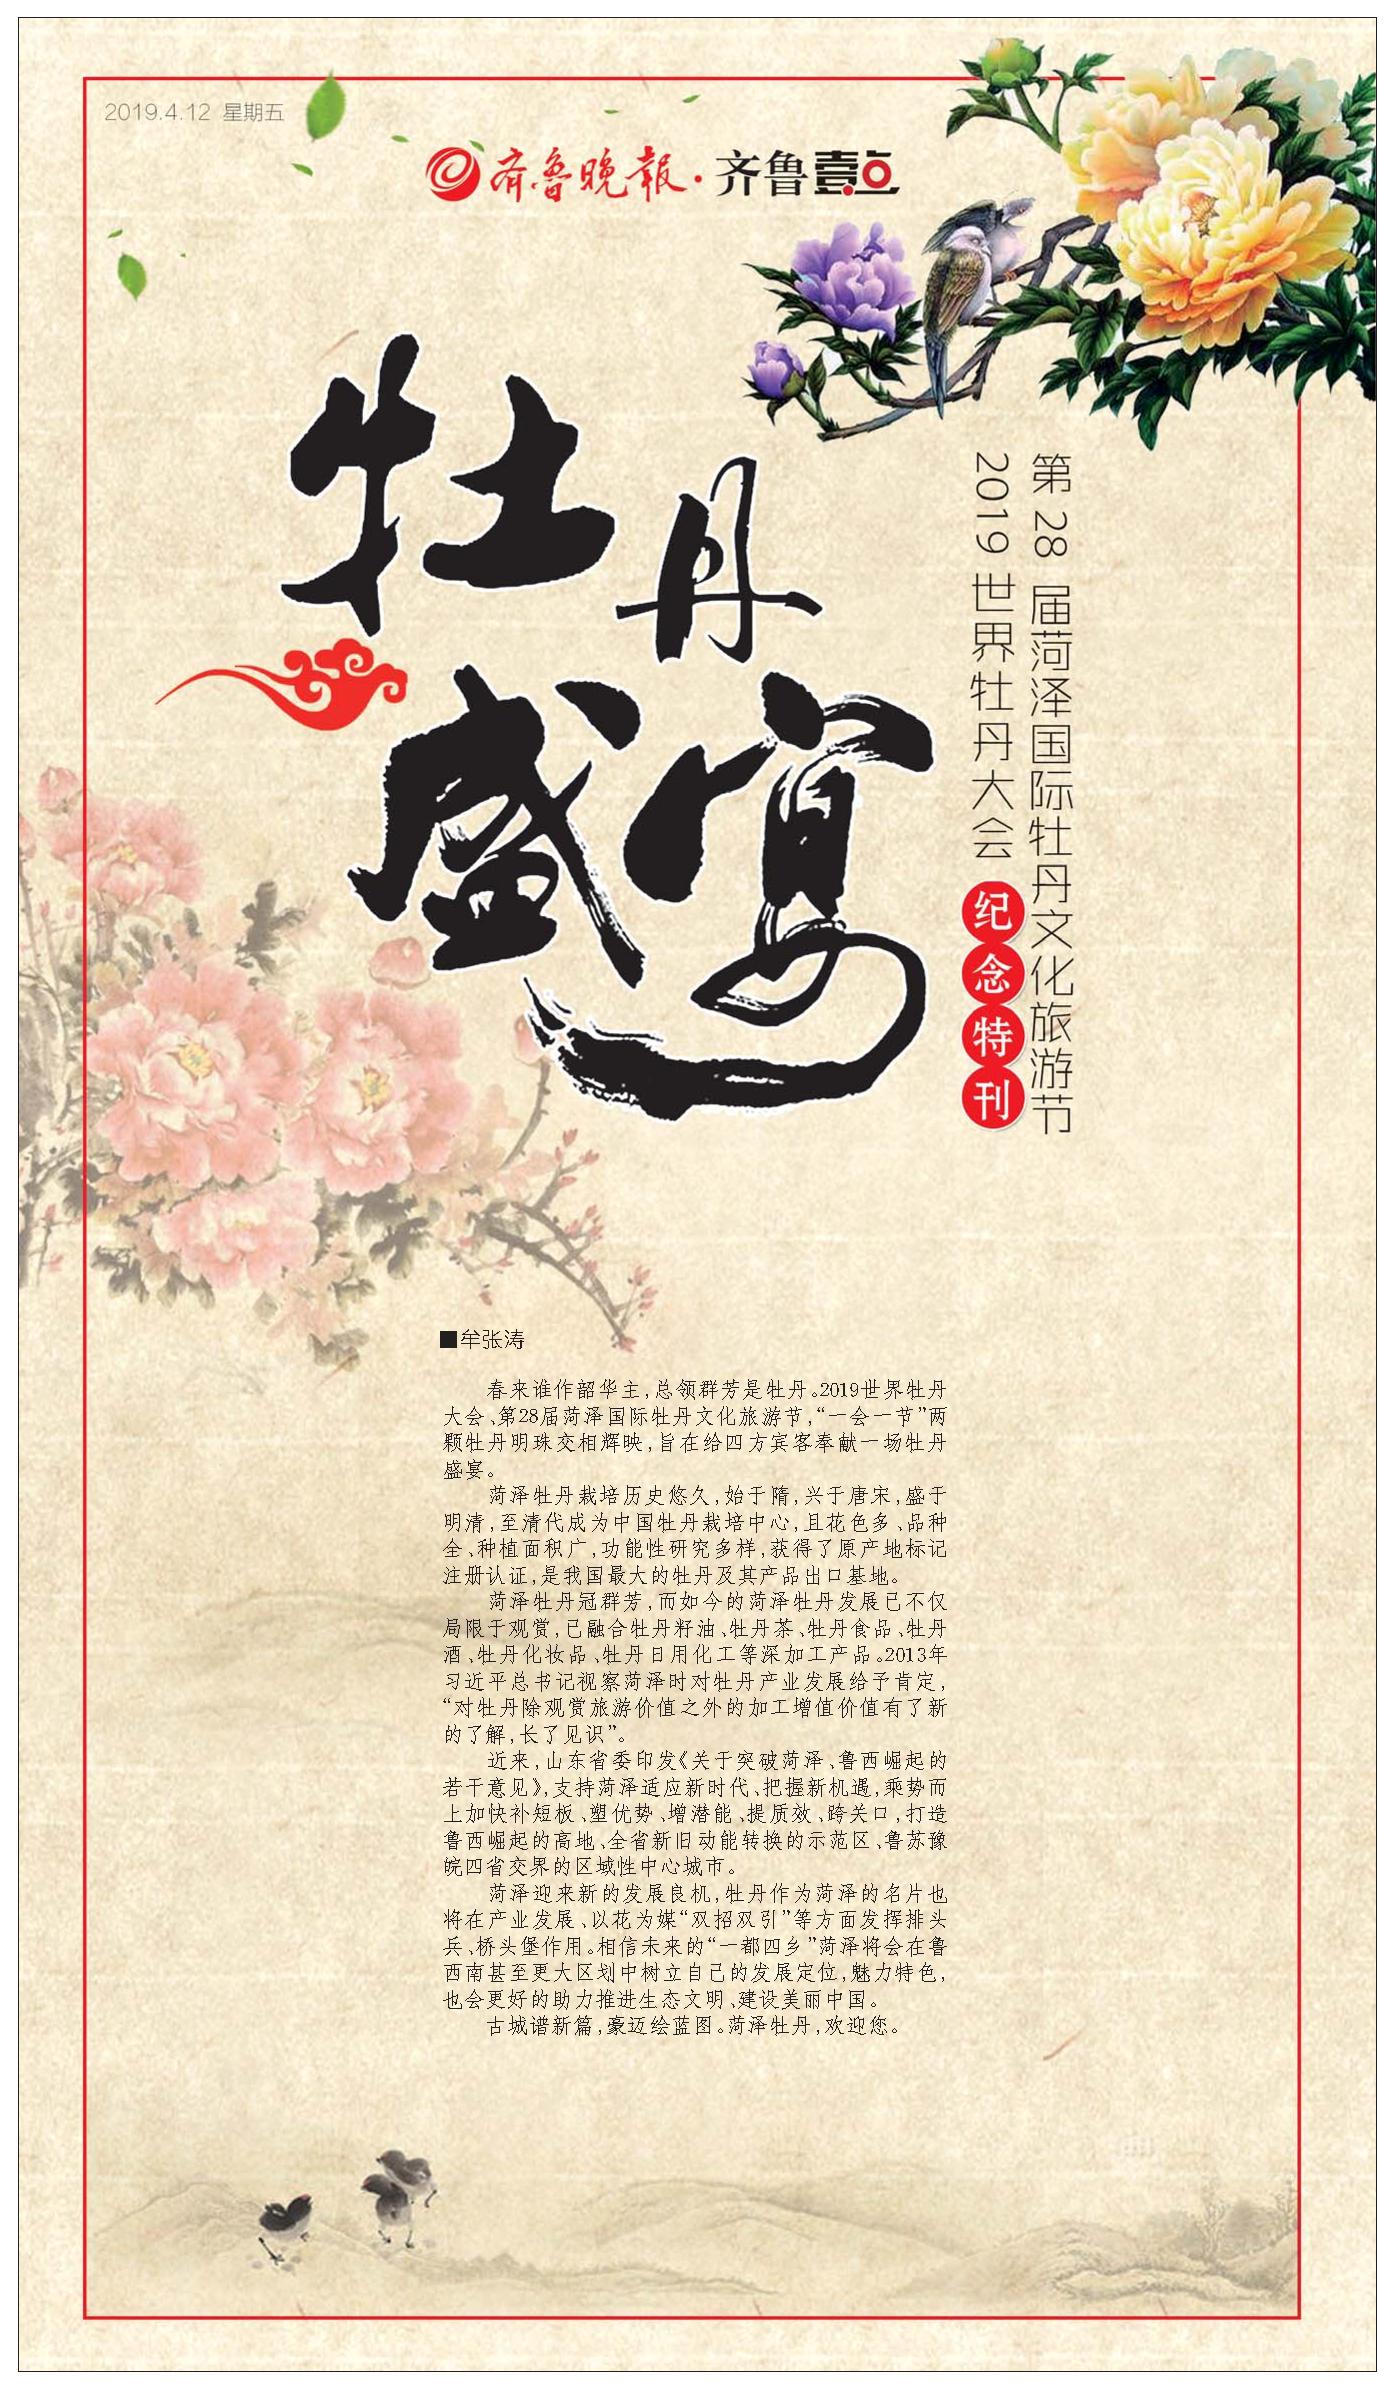 2019.4.12 星期五
齐鲁晚報·齐鲁壹点
牡丹
盛宴
第28届菏泽国际牡丹文化旅游节
2019世界牡丹大会 纪念特刊
■牟张涛
春来谁作韶华主,总领群芳是牡丹。2019世界牡丹
大会、第28届菏泽国际牡丹文化旅游节,“一会一节”两
颗牡丹明珠交相辉映,旨在给四方宾客奉献一场牡丹
盛宴。
菏泽牡丹栽培历史悠久,始于隋,兴于唐宋,盛于
明清,至清代成为中国牡丹栽培中心,且花色多、品种
全、种植面积广,功能性研究多样,获得了原产地标记
注册认证,是我国最大的牡丹及其产品出口基地。
菏泽牡丹冠群芳,而如今的菏泽牡丹发展已不仅
局限于观赏,已融合牡丹籽油、牡丹茶、牡丹食品、牡丹
酒、牡丹化妆品、牡丹日用化工等深加工产品。2013年
习近平总书记视察菏泽时对牡丹产业发展给予肯定,
“对牡丹除观赏旅游价值之外的加工增值价值有了新
的了解,长了见识”。
近来,山东省委印发《关于突破菏泽、鲁西崛起的
若干意见》,支持菏泽适应新时代、把握新机遇,乘势而
上加快补短板、塑优势、增潜能、提质效、跨关口,打造
鲁西崛起的高地、全省新旧动能转换的示范区、鲁苏豫
皖四省交界的区域性中心城市。
菏泽迎来新的发展良机,牡丹作为菏泽的名片也
将在产业发展、以花为媒“双招双引”等方面发挥排头
兵、桥头堡作用。相信未来的“一都四乡”菏泽将会在鲁
西南甚至更大区划中树立自己的发展定位,魅力特色,
也会更好的助力推进生态文明、建设美丽中国。
古城谱新篇,豪迈绘蓝图。菏泽牡丹,欢迎您。